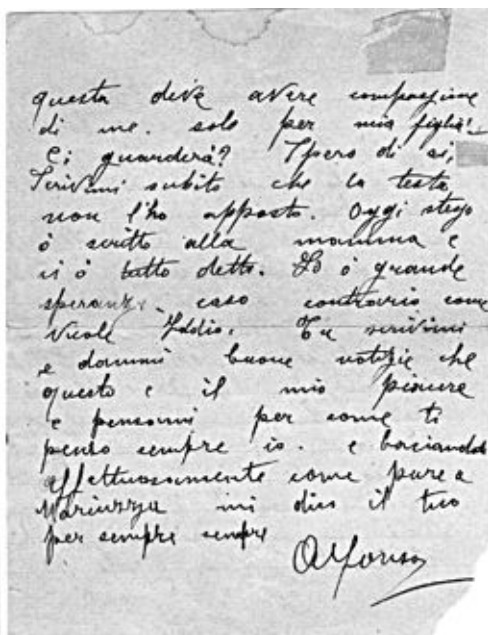 questa deve avere compassione
di me. solo per mia figlia!
Ci guarderà? Spero di si,
Scrivimi subito che la testa
non l'ho apposto. Oggi stesso
ò scritto alla mamma e
ci ò tutto detto. Io ò grande
speranza. caso contrario come
vuole Iddio. Tu scrivimi
e dammi buone notizie che
questo e il mio piacere
e pensami per come ti
penso sempre io. e baciandoti
affettuosamente come pure a
Mariuzza mi dico il tuo
per sempre sempre
Alfonso